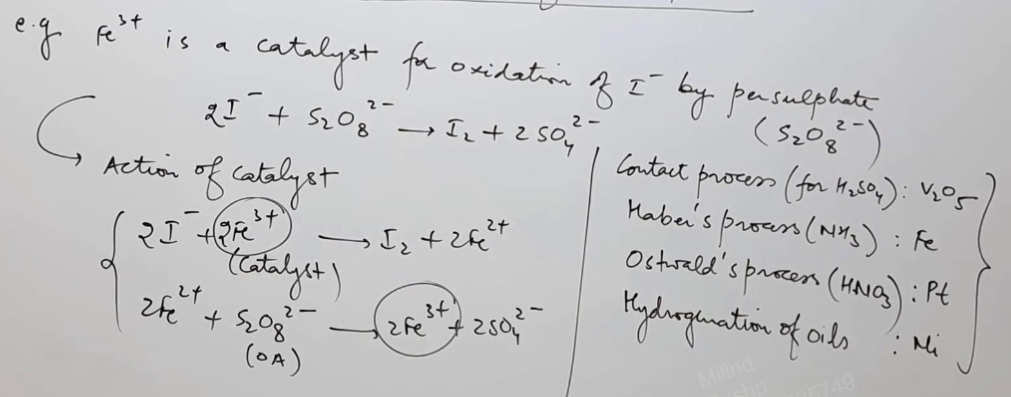 e.g Fe³⁺ is a catalyst for oxidation of I⁻ by persulphate
(S₂O₈²⁻)
2I⁻ + S₂O₈²⁻ → I₂ + 2SO₄²⁻
Action of catalyst
2I⁻ + 2Fe³⁺ → I₂ + 2Fe²⁺
(Catalyst)
2Fe²⁺ + S₂O₈²⁻ → 2Fe³⁺ + 2SO₄²⁻
(OA)
Contact process (for H₂SO₄) : V₂O₅
Haber's process (NH₃) : Fe
Ostwald's process (HNO₃) : Pt
Hydrogenation of oils : Ni